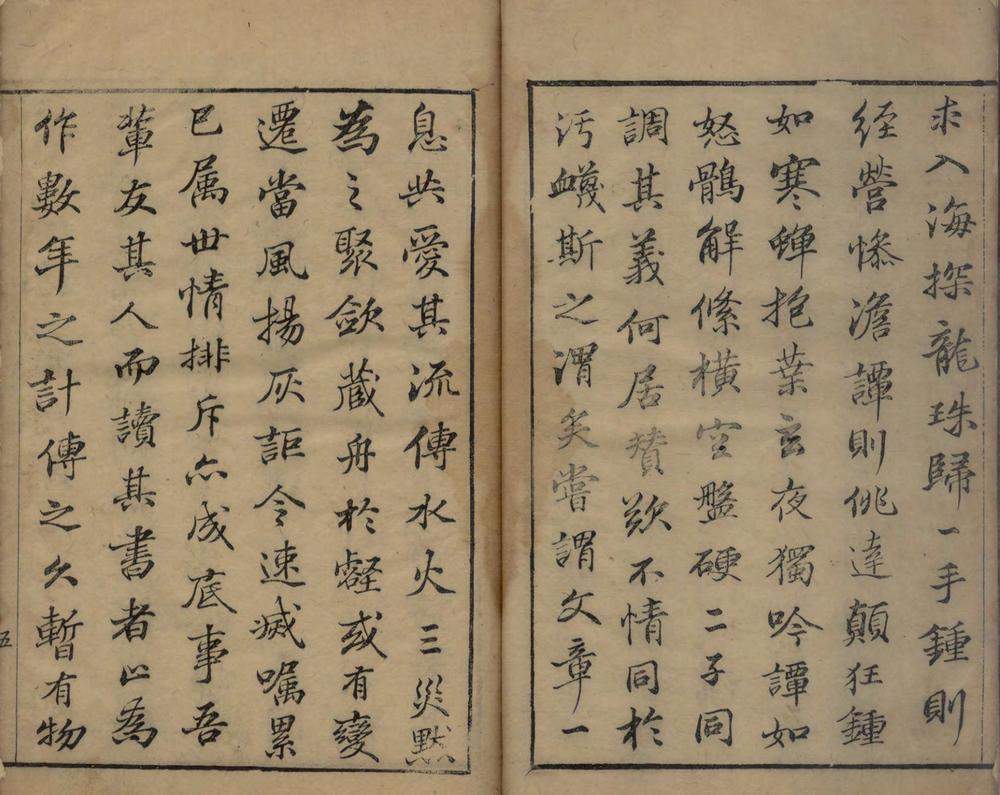 求入海探龍珠歸一手鍾則
經營慘澹譚則佻達顛狂鍾
如寒蟬抱葉玄夜獨吟譚如
怒鶻解絛橫空盤硬二子同
調其義何居賛歎不情同於
汚衊斯之謂矣嘗謂文章一
息共愛其流傳水火三災默
為之聚歛藏舟於壑或有變
遷當風揚灰詎令速滅囑累
已属世情排斥亦成底事吾
輩友其人而讀其書者止為
作數年之計傳之久暫有物
五